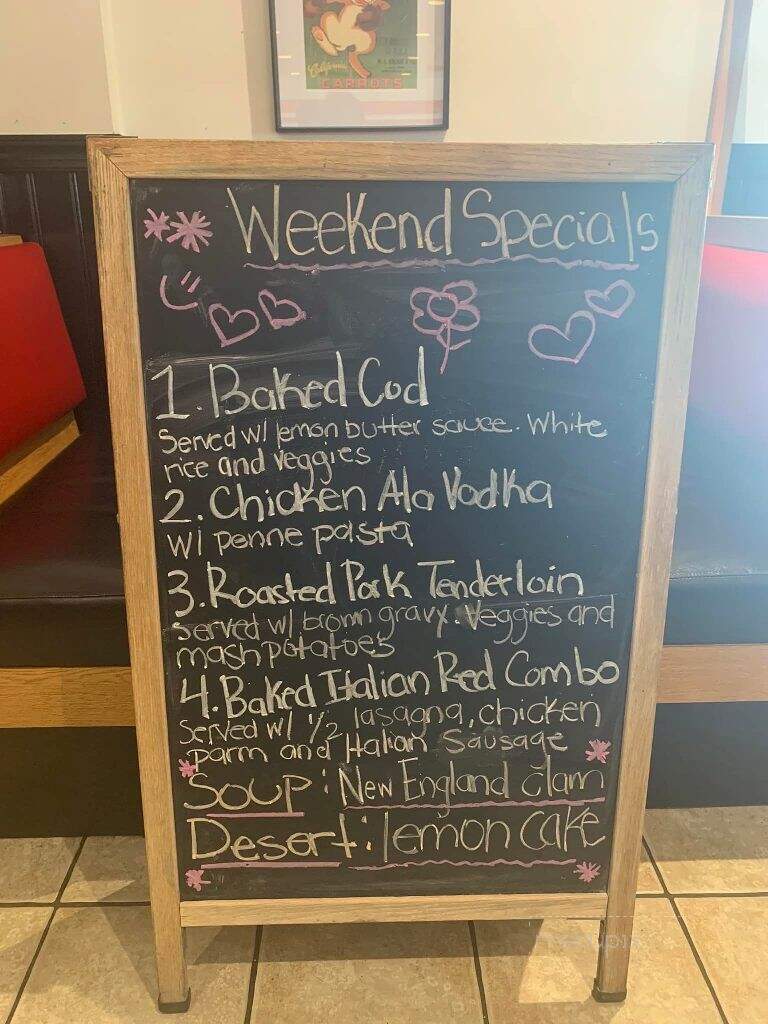 California
CARROTS
Weekend Specials
1. Baked Cod
Served w/ lemon butter sauce. White
rice and veggies
2. Chicken Ala Vodka
w/ penne pasta
3. Roasted Pork Tenderloin
Served w/ brown gravy. Veggies and
mash potatoes
4. Baked Italian Red Combo
Served w/ 1/2 lasagna, chicken
parm and Italian Sausage
Soup: New England clam
Desert: lemon cake